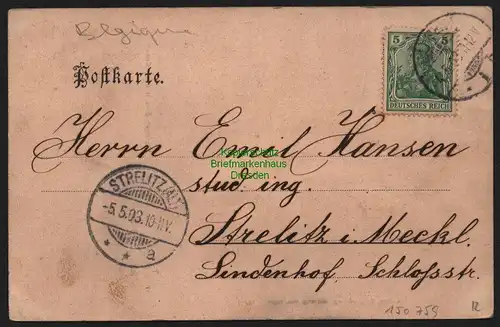 Belgique
Postkarte.
5 5
DEUTSCHES REICH
Herrn Emil Hansen
Briefmarkenhaus
Dresden
stud. ing.
STRELITZ (ALT)
-5.5.03.10-11V.
* * a
Strelitz i. Meckl.
Lindenhof, Schlossstr.
150 759
12